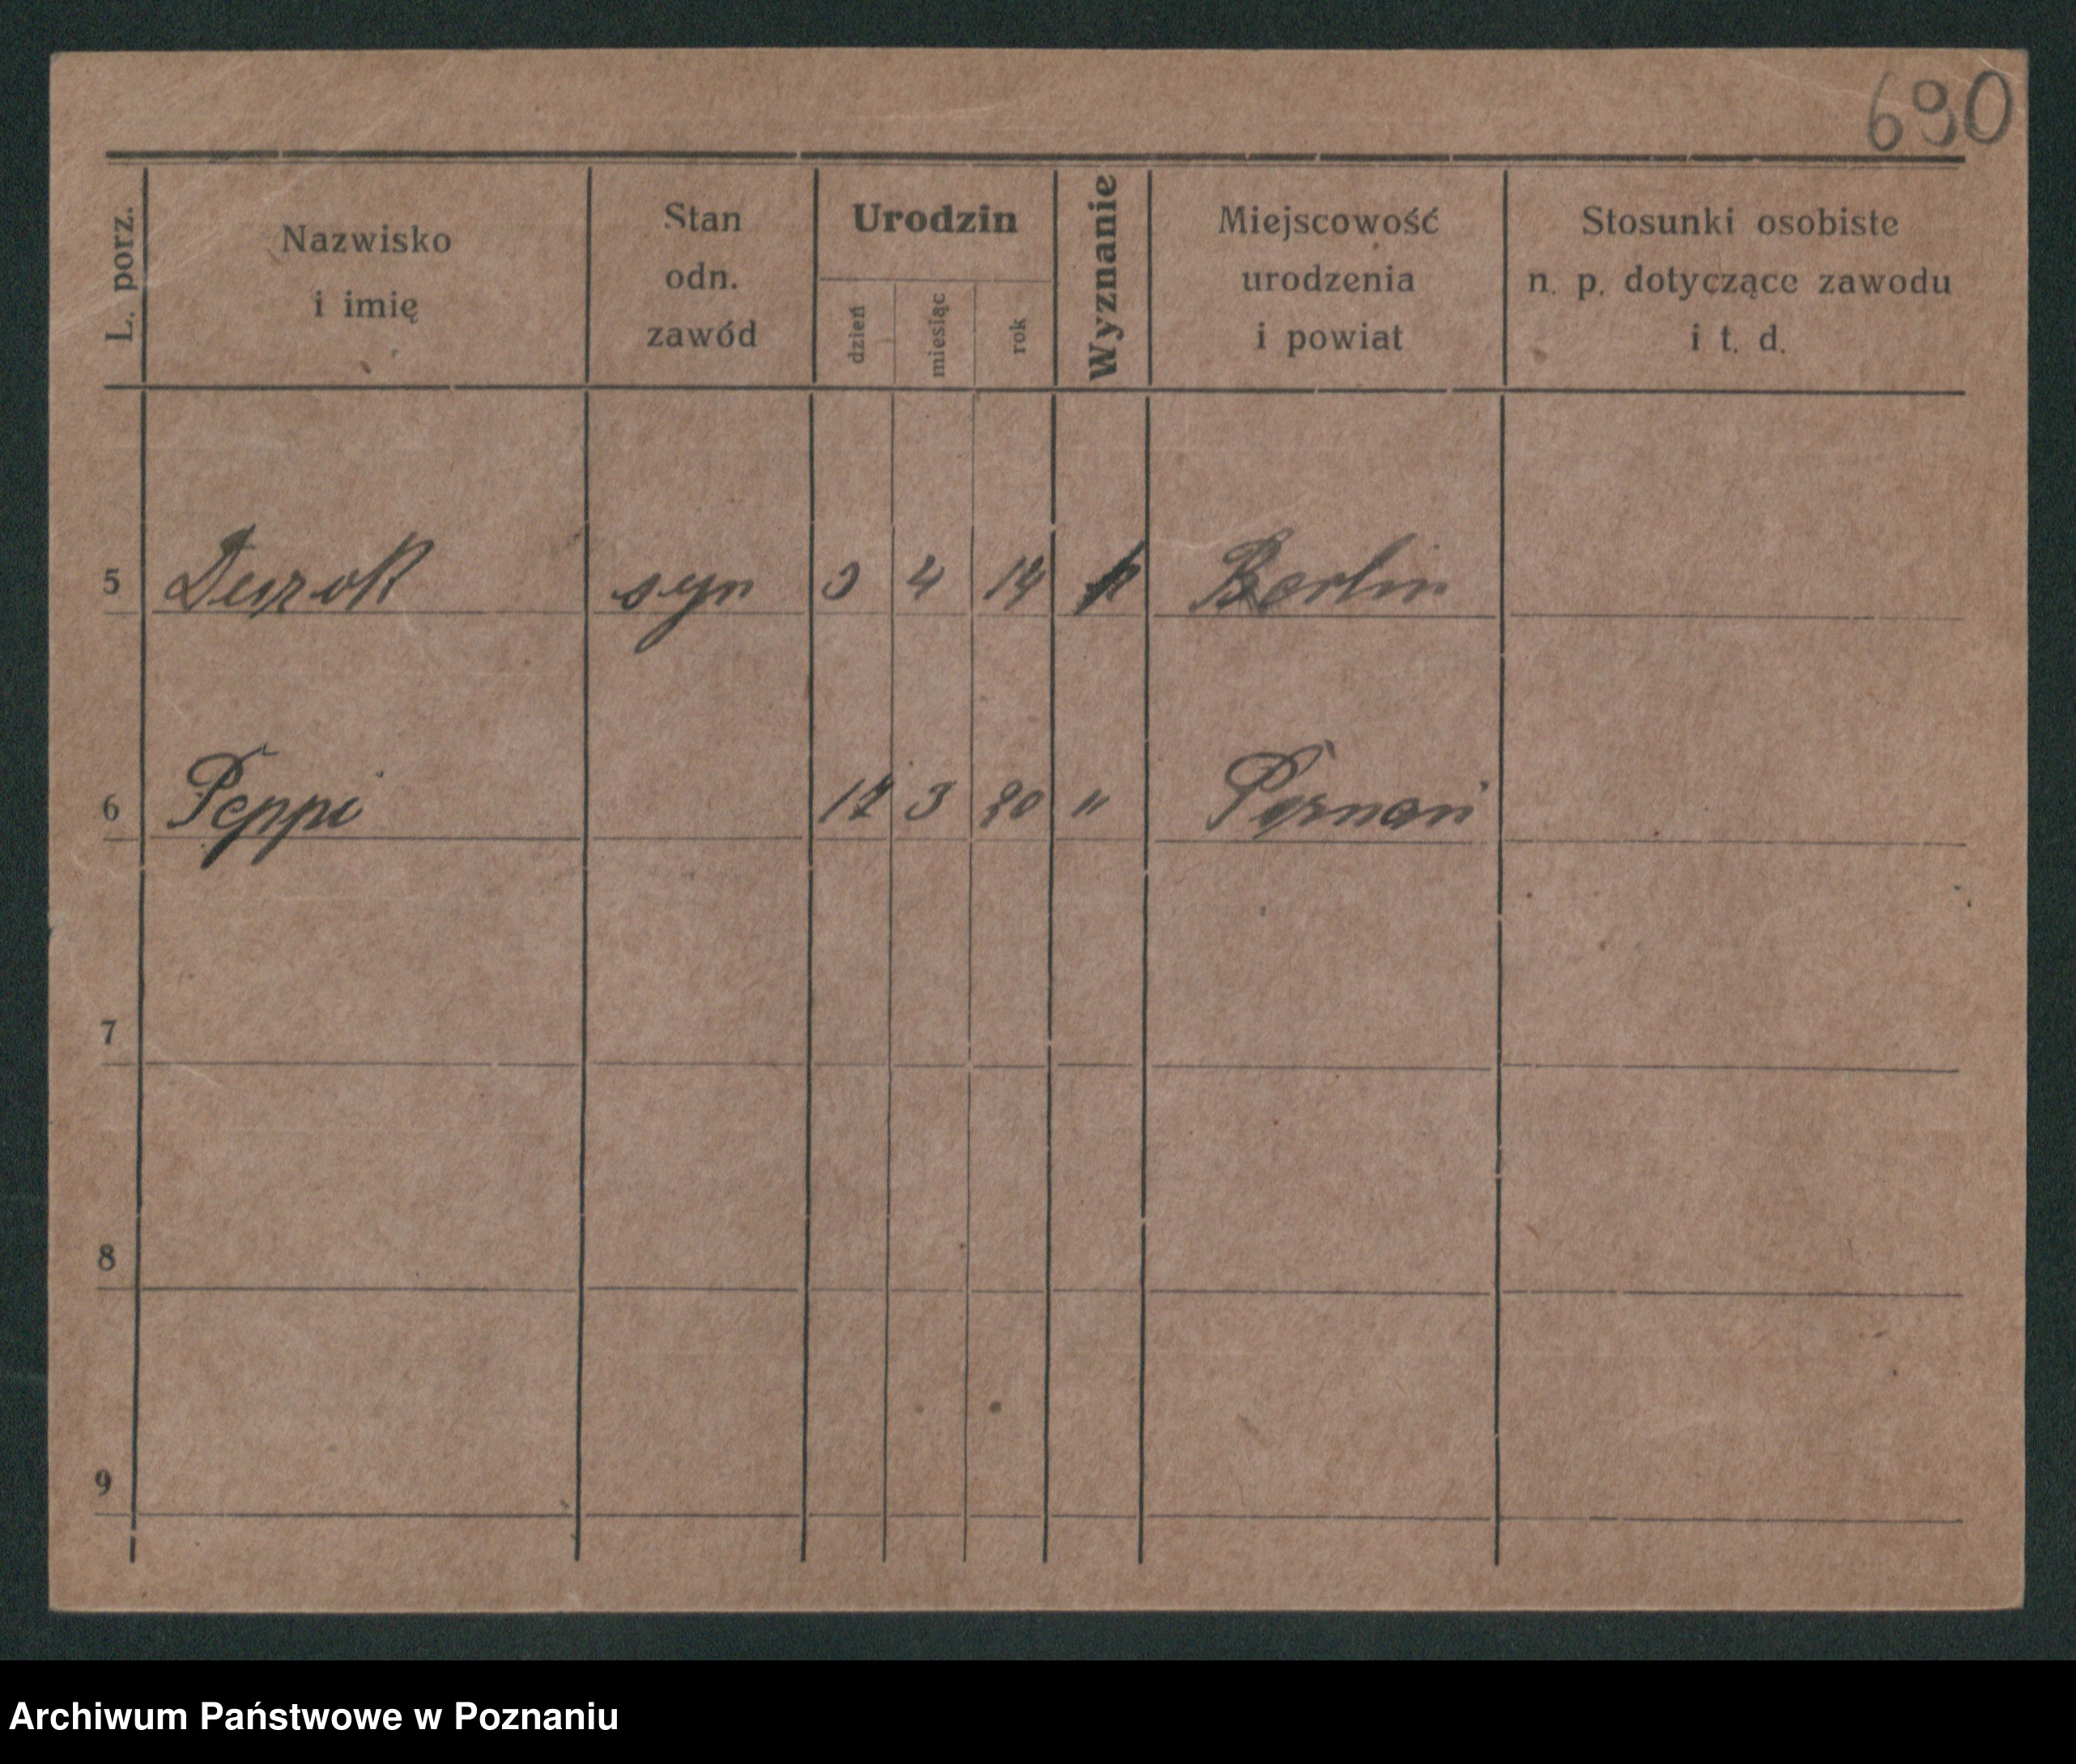 690
L. porz.
Nazwisko
i imię
Stan
odn.
zawód
Urodzin
dzień
miesiąc
rok
Wyznanie
Miejscowość
urodzenia
i powiat
Stosunki osobiste
n. p. dotyczące zawodu
i t. d.
5 syn 3 4 14 Berlin
6 Peppi 17 3 20 " Poznań
7
8
9
Archiwum Państwowe w Poznaniu